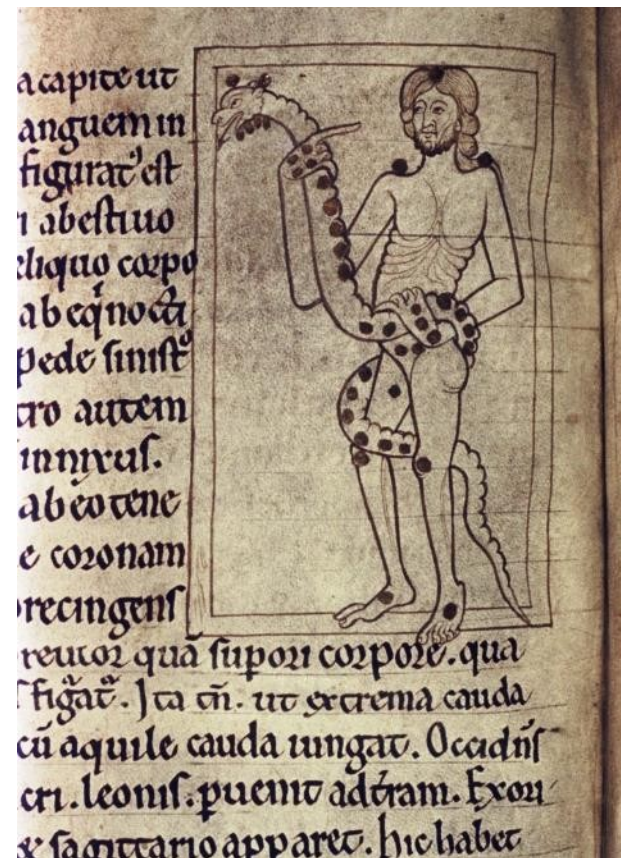 a capite ut
anguem in
figurat᷒ est
i ab estiuo
eliquo corpo
ab eq̓nocti
pede sinist᷒
tro autem
innixus.
ab eo tene
e coronam
precingens
reuior quā supori corpore. qua
figat᷒. Ita tn̄. ut extrema cauda
cū aquile cauda iungat. Occidn̄s
cri. leonis. puenit ad t᷒ram. Exori
& sagittario apparet. hic habet